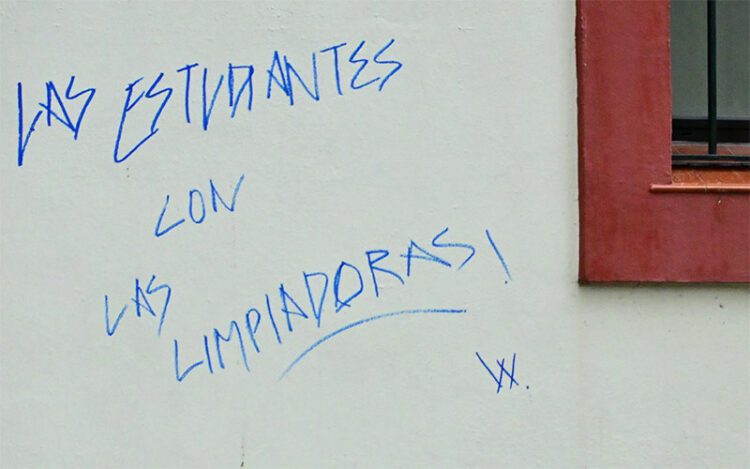 LAS ESTUDIANTES
CON
LAS
LIMPIADORAS!
W.